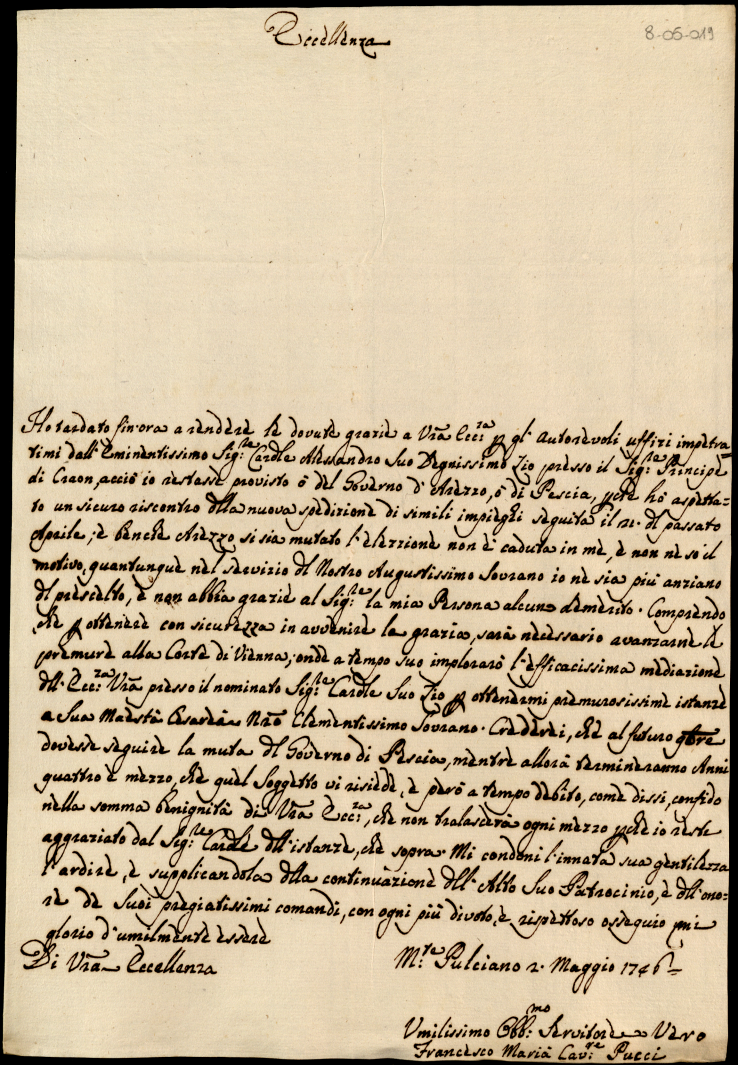 Eccellenza
8-05-019
Ho tardato fin'ora a rendere le dovute grazie a Vrã Ecc:za p gl' autorevoli uffizi impetra-
timi dall' Eminentissimo Sig:re Cardle Alessandro Suo Degnissimo Zio presso il Sig:re Principe
di Craon, acciò io restasse provisto ò del Governo d'Arezzo, ò di Pescia, pche hò aspetta-
to un sicuro riscontro dlla nuova spedizione di simili impieghi seguita il 21. dl passato
Aprile; è benche Arezzo si sia mutato l'elezzione non è caduta in mè, è non nè sò il
motivo, quantunque nel servizio dl Nostro Augustissimo Sovrano io nè sia più anziano
dl prescelto, è non abbia grazie al Sig:re la mia Persona alcuno demerito. Comprendo
che p ottenere con sicurezza in avvenire la grazia, sarà necessario avanzarne le
premure alla Corte di Vienna; onde a tempo suo implorarò l'efficacissima mediazione
dll' Ecc:za Vrã presso il nominato Sig:re Cardle Suo Zio p ottenermi premurosissime istanze
a Sua Maestà Cesarea Nrõ Clementissimo Sovrano. Crederei, che al futuro 9bre
dovesse seguire la muta dl Governo di Pescia, mentre allora termineranno Anni
quattro è mezzo, che quel Soggetto vi risiede, è però a tempo debito, come dissi, confido
nella somma benignità di Vrã Ecc:za, che non tralascerà ogni mezzo pche io resti
aggraziato dal Sig:re Cardle dll' istanze, che sopra. Mi condoni l'innata sua gentilezza
l'ardire, è supplicandola dlla continuazione dll' Alto Suo Patrocinio, è dll' ono-
re de Suoi pregiatissimi comandi, con ogni più divoto, è rispettoso ossequio mi
glorio d'umilmente essere
Di Vrã Eccellenza
M:te Pulciano 2. Maggio 1746
Umilissimo Obb:mo Servitore Vero
Francesco Maria Cav:re Pucci